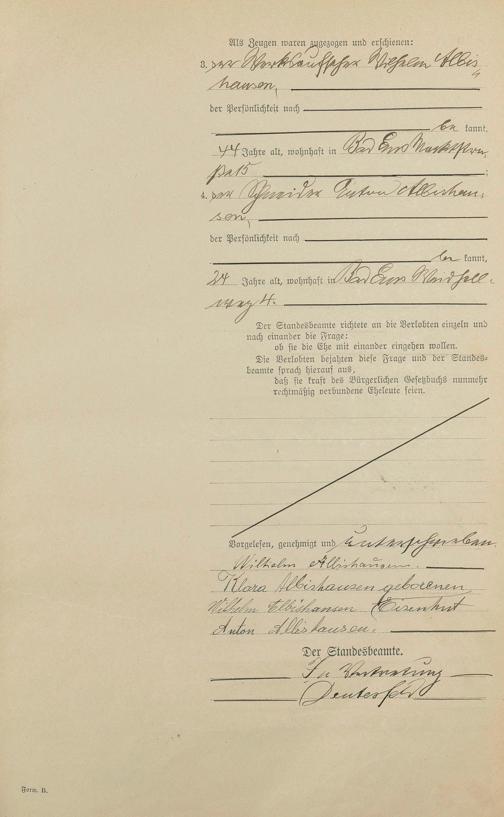 Als Zeugen waren zugezogen und erschienen:
3. der Werksaufseher Wilhelm Albis
hausen,
der Persönlichkeit nach
be kannt,
44 Jahre alt, wohnhaft in Bad Ems Marktstra
ße 15;
4. der Schneider Anton Albishau
sen,
der Persönlichkeit nach
be kannt,
24 Jahre alt, wohnhaft in Bad Ems
weg 4.
Der Standesbeamte richtete an die Verlobten einzeln und
nach einander die Frage:
ob sie die Ehe mit einander eingehen wollen.
Die Verlobten bejahten diese Frage und der Standes-
beamte sprach hierauf aus,
daß sie kraft des Bürgerlichen Gesetzbuchs nunmehr
rechtmäßig verbundene Eheleute seien.
Vorgelesen, genehmigt und unterschrieben
Wilhelm Albishausen.
Klara Albishausen geborenen
Wilhelm Albishausen Eisenhut
Anton Albishausen.
Der Standesbeamte.
In Vertretung
Form. B.